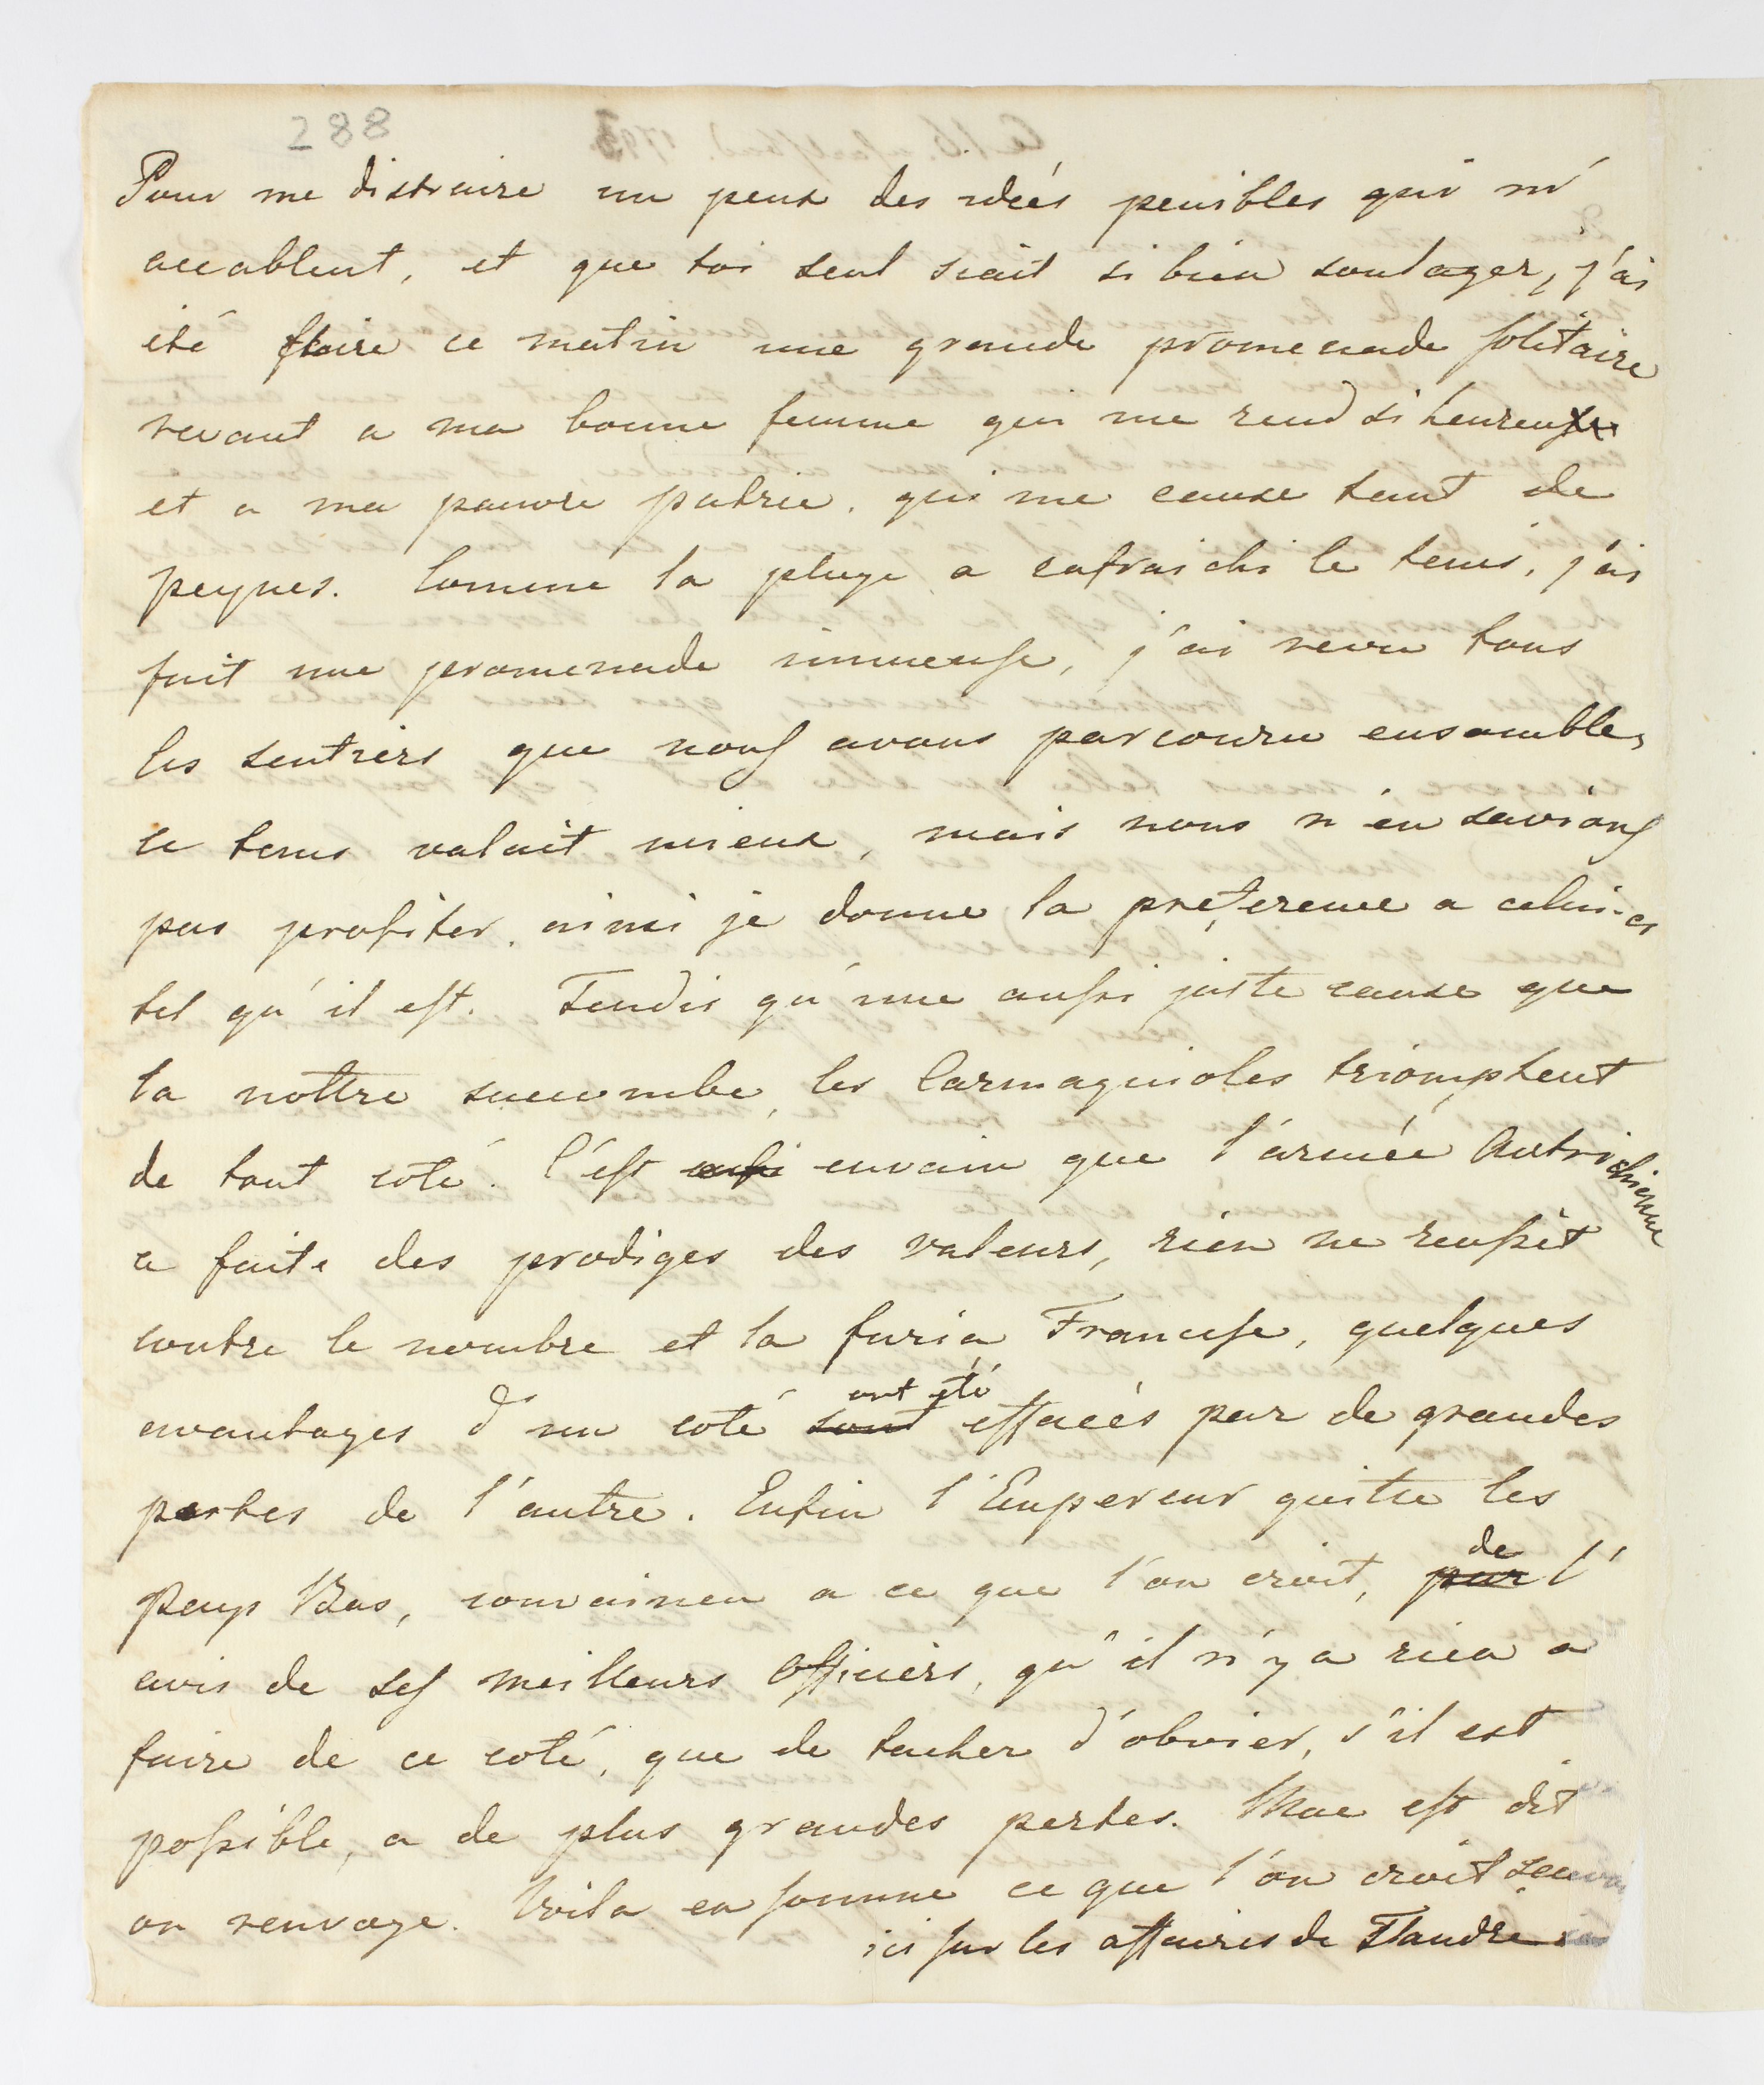 288
Pour me distraire un peux des idées penibles qui m'
accablent, et que toi seul scait si bien soulager, j'ai
été faire ce matin une grande promenade solitaire
revant a ma bonne femme qui me rend si heureux
et a ma pauvre patrie, qui me cause tant de
peynes. Comme la pluye a rafraichi le tems, j'ai
fait une promenade immense, j'ai revu tous
les sentiers que nous avons parcouru ensemble,
le tems valait mieux, mais nous n'en savions
pas profiter, ainsi je donne la preference a celui-ci
tel qu'il est. Tendis qu'une aussi juste cause que
la nottre succombe, les Carmagnioles triomphent
de tout coté. C'est envain que l'armée Autrichienne
a faite des prodiges des valeurs, rien ne reussit
contre le nombre et la furia Francese, quelques
avantages d'un coté sont ont été effacés par de grandes
pertes de l'autre. Enfin l'Empereur quitte les
Pays Bas, convaincu a ce que l'on croit, par de l'
avis de ses meilleurs Officiers, qu'il n'y a rien a
faire de ce coté, que de tacher d'obvier, s'il est
possible, a de plus grandes pertes. Mac est dit
on renvoye. Voila en somme ce que l'on croit
ici sur les affaires de Flandre